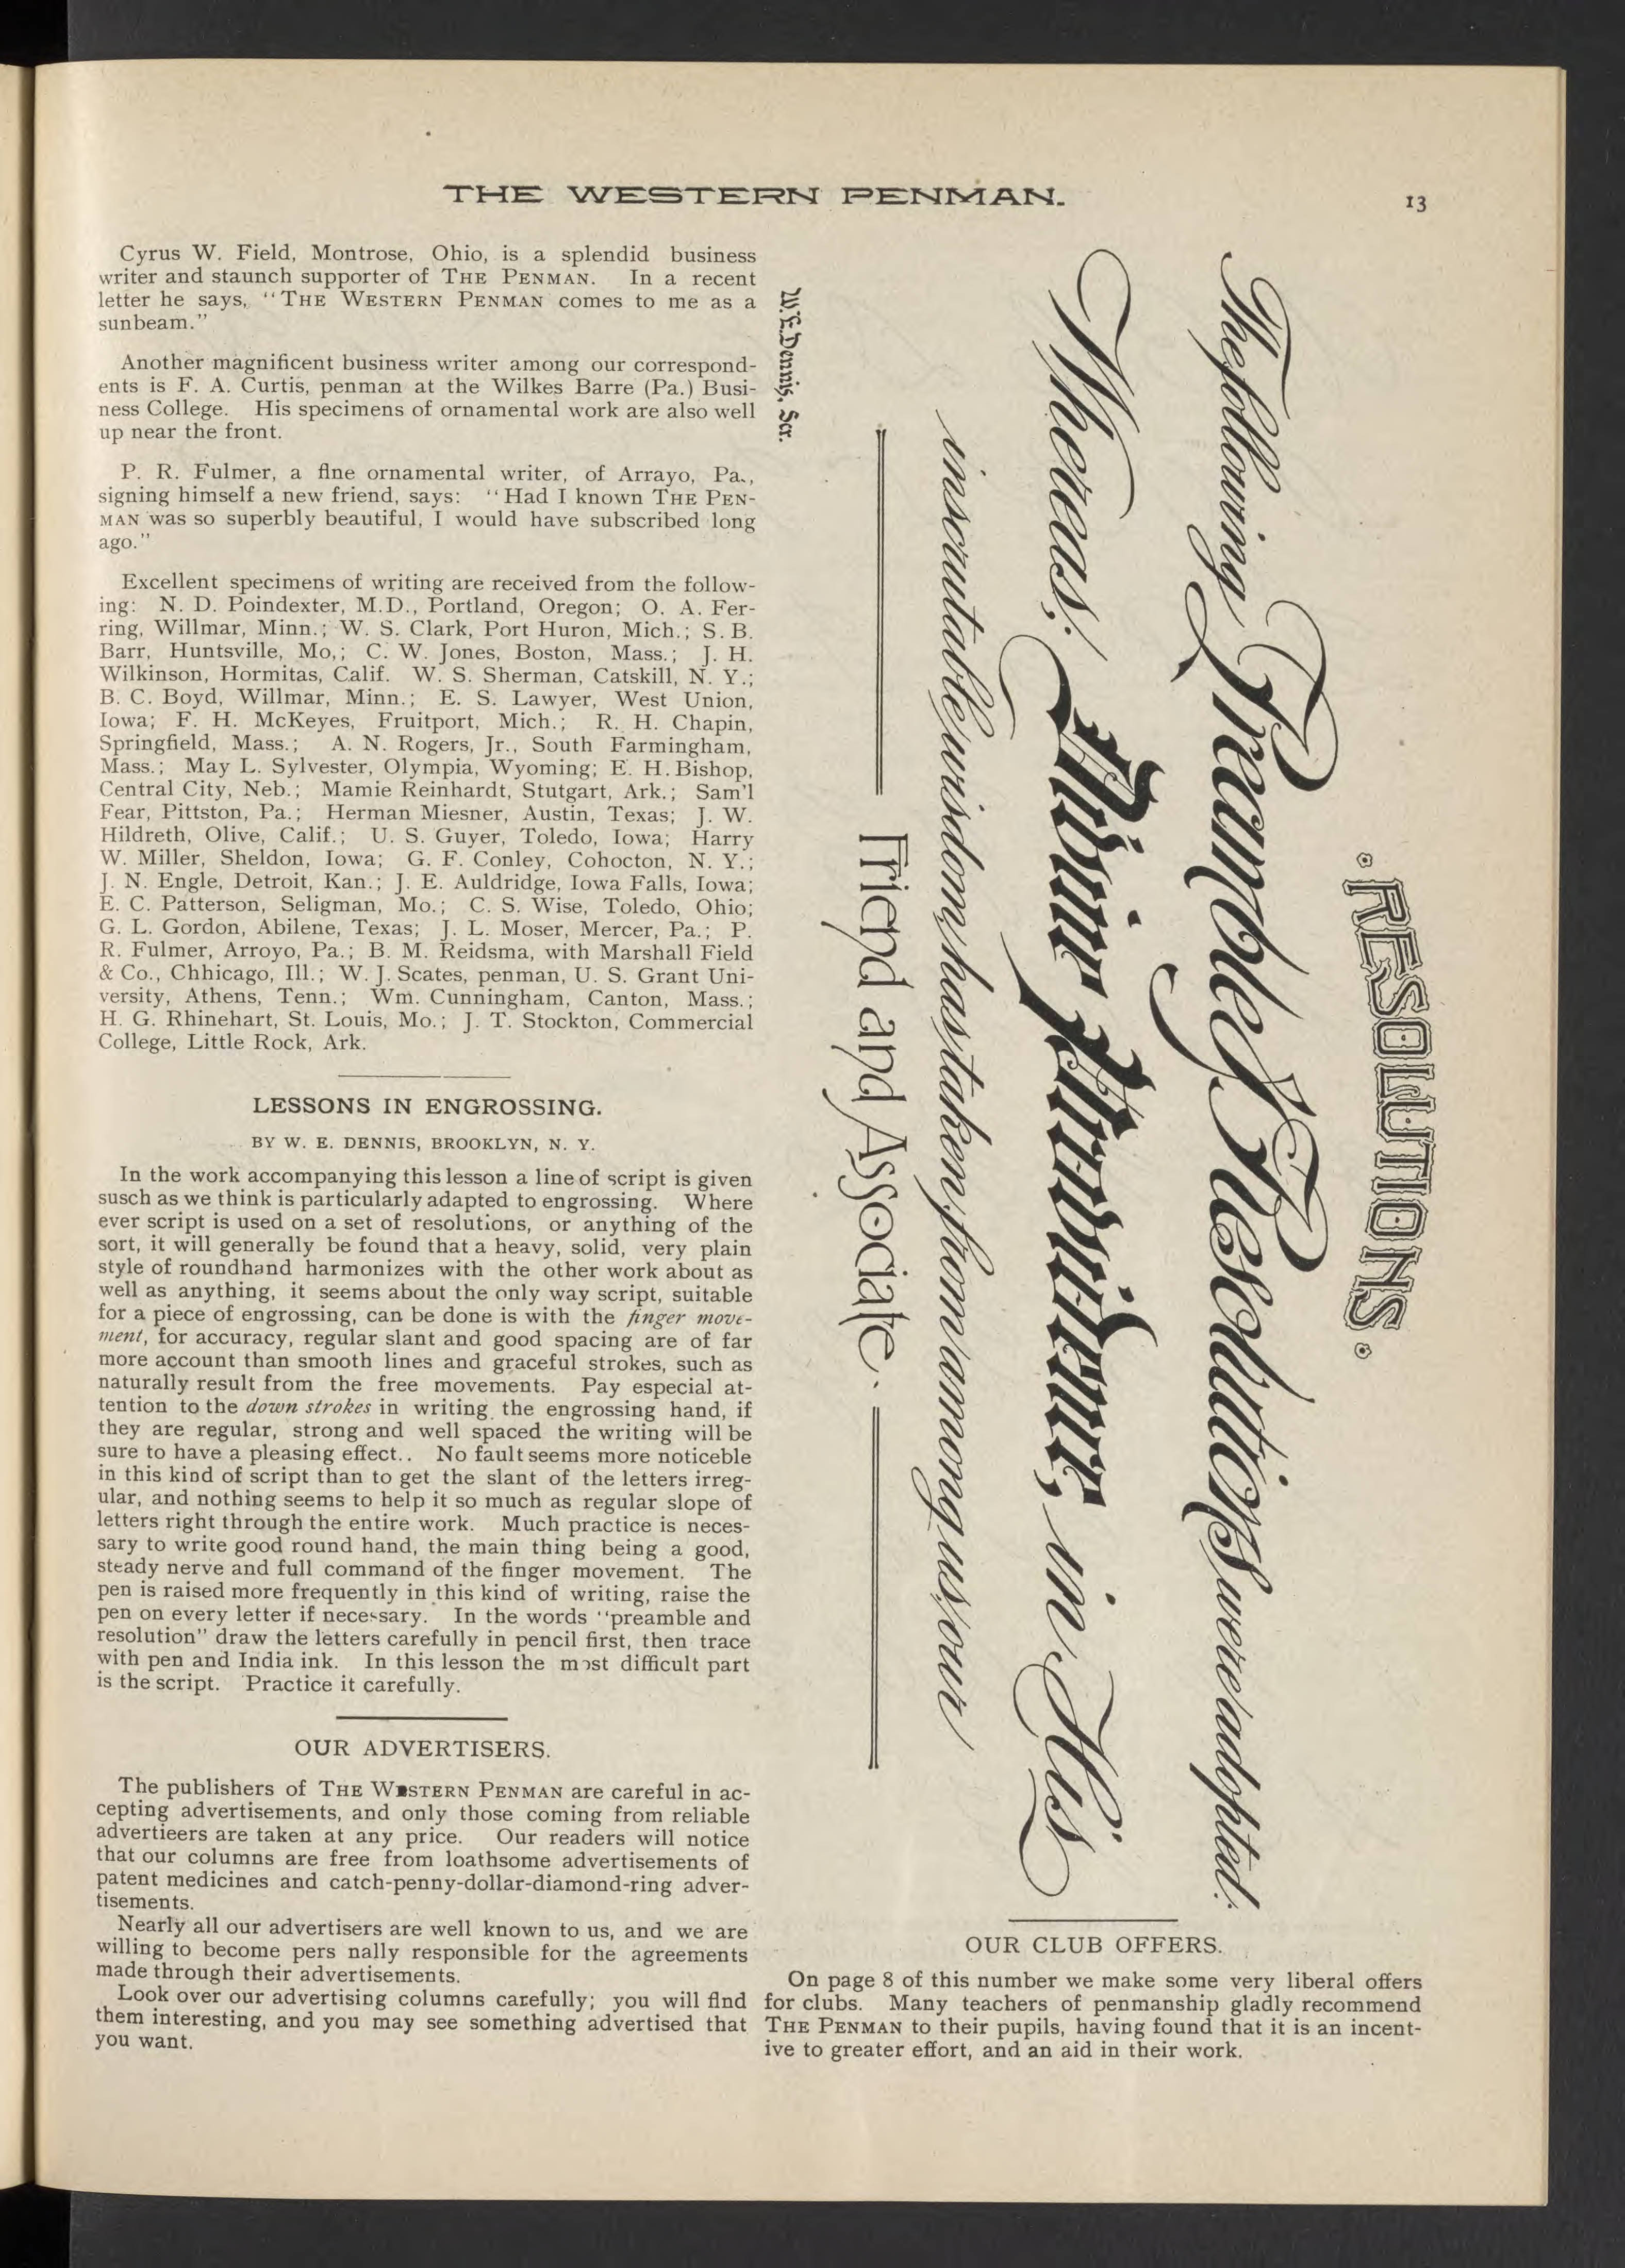 THE WESTERN PENMAN.
13
Cyrus W. Field, Montrose, Ohio, is a splendid business
writer and staunch supporter of THE PENMAN. In a recent
letter he says, "THE WESTERN PENMAN comes to me as a
sunbeam."
Another magnificent business writer among our correspond-
ents is F. A. Curtis, penman at the Wilkes Barre (Pa.) Busi-
ness College. His specimens of ornamental work are also well
up near the front.
P. R. Fulmer, a fine ornamental writer, of Arrayo, Pa.,
signing himself a new friend, says: "Had I known THE PEN-
MAN was so superbly beautiful, I would have subscribed long
ago."
Excellent specimens of writing are received from the follow-
ing: N. D. Poindexter, M.D., Portland, Oregon; O. A. Fer-
ring, Willmar, Minn.; W. S. Clark, Port Huron, Mich.; S. B.
Barr, Huntsville, Mo,; C. W. Jones, Boston, Mass.; J. H.
Wilkinson, Hormitas, Calif. W. S. Sherman, Catskill, N. Y.;
B. C. Boyd, Willmar, Minn.; E. S. Lawyer, West Union,
Iowa; F. H. McKeyes, Fruitport, Mich.; R. H. Chapin,
Springfield, Mass.; A. N. Rogers, Jr., South Farmingham,
Mass.; May L. Sylvester, Olympia, Wyoming; E. H. Bishop,
Central City, Neb.; Mamie Reinhardt, Stutgart, Ark.; Sam'l
Fear, Pittston, Pa.; Herman Miesner, Austin, Texas; J. W.
Hildreth, Olive, Calif.; U. S. Guyer, Toledo, Iowa; Harry
W. Miller, Sheldon, Iowa; G. F. Conley, Cohocton, N. Y.;
J. N. Engle, Detroit, Kan.; J. E. Auldridge, Iowa Falls, Iowa;
E. C. Patterson, Seligman, Mo.; C. S. Wise, Toledo, Ohio;
G. L. Gordon, Abilene, Texas; J. L. Moser, Mercer, Pa.; P.
R. Fulmer, Arroyo, Pa.; B. M. Reidsma, with Marshall Field
& Co., Chhicago, Ill.; W. J. Scates, penman, U. S. Grant Uni-
versity, Athens, Tenn.; Wm. Cunningham, Canton, Mass.;
H. G. Rhinehart, St. Louis, Mo.; J. T. Stockton, Commercial
College, Little Rock, Ark.
LESSONS IN ENGROSSING.
BY W. E. DENNIS, BROOKLYN, N. Y.
In the work accompanying this lesson a line of script is given
susch as we think is particularly adapted to engrossing. Where
ever script is used on a set of resolutions, or anything of the
sort, it will generally be found that a heavy, solid, very plain
style of roundhand harmonizes with the other work about as
well as anything, it seems about the only way script, suitable
for a piece of engrossing, can be done is with the finger move-
ment, for accuracy, regular slant and good spacing are of far
more account than smooth lines and graceful strokes, such as
naturally result from the free movements. Pay especial at-
tention to the down strokes in writing the engrossing hand, if
they are regular, strong and well spaced the writing will be
sure to have a pleasing effect.. No fault seems more noticeble
in this kind of script than to get the slant of the letters irreg-
ular, and nothing seems to help it so much as regular slope of
letters right through the entire work. Much practice is neces-
sary to write good round hand, the main thing being a good,
steady nerve and full command of the finger movement. The
pen is raised more frequently in this kind of writing, raise the
pen on every letter if necessary. In the words "preamble and
resolution" draw the letters carefully in pencil first, then trace
with pen and India ink. In this lesson the most difficult part
is the script. Practice it carefully.
OUR ADVERTISERS.
The publishers of THE WESTERN PENMAN are careful in ac-
cepting advertisements, and only those coming from reliable
advertieers are taken at any price. Our readers will notice
that our columns are free from loathsome advertisements of
patent medicines and catch-penny-dollar-diamond-ring adver-
tisements.
Nearly all our advertisers are well known to us, and we are
willing to become pers nally responsible for the agreements
made through their advertisements.
Look over our advertising columns carefully; you will find
them interesting, and you may see something advertised that
you want.
RESOLUTIONS.
The following Preamble & Resolutions were adopted:
Whereas; Divine Providence, in His
inscrutable wisdom, has taken from among us, our
Friend and Associate.
W.E.Dennis, Scr.
OUR CLUB OFFERS.
On page 8 of this number we make some very liberal offers
for clubs. Many teachers of penmanship gladly recommend
THE PENMAN to their pupils, having found that it is an incent-
ive to greater effort, and an aid in their work.